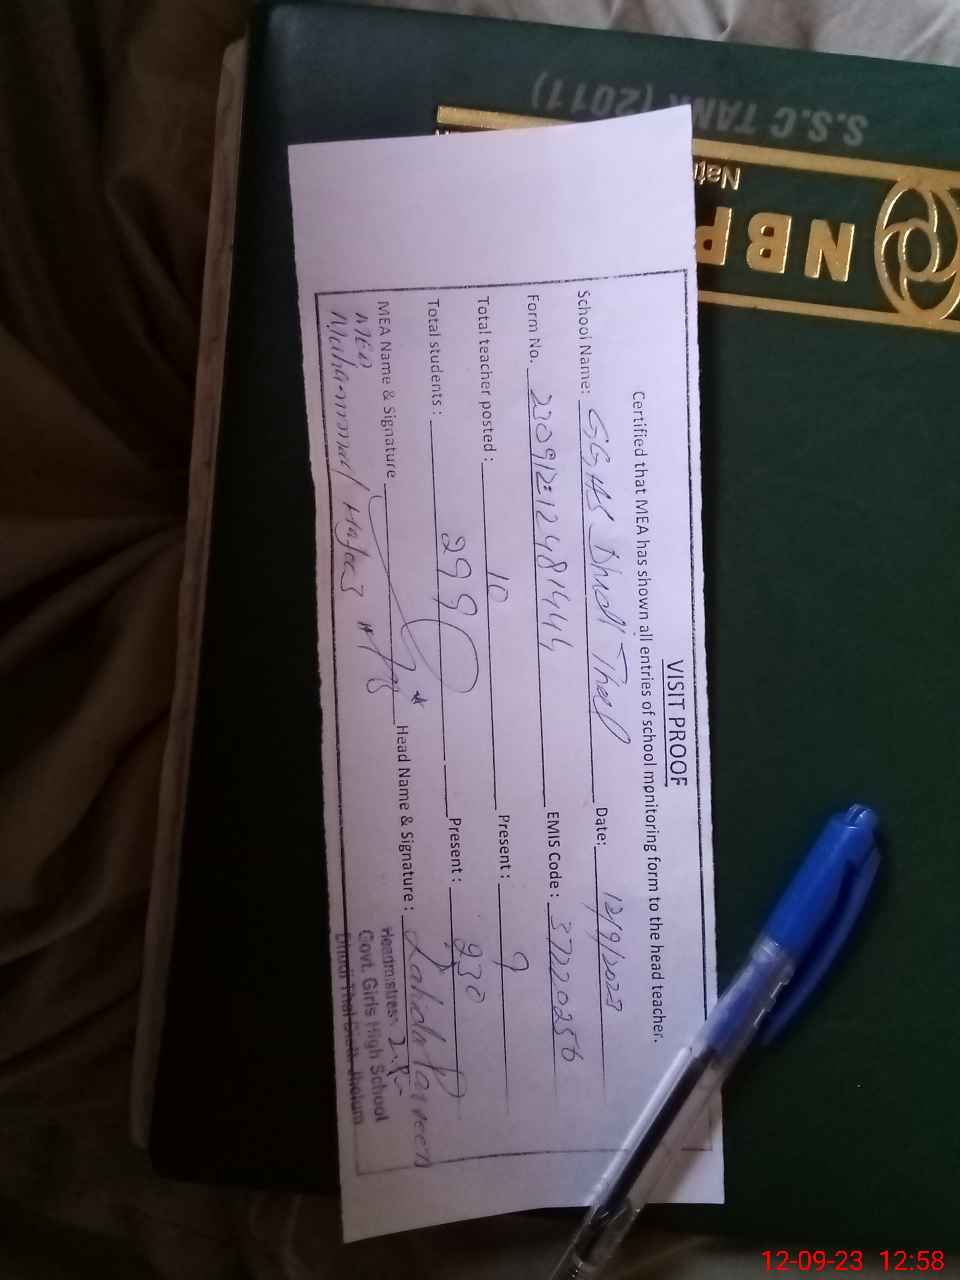 S.S.C TANK (2011)
NBP
VISIT PROOF
Certified that MEA has shown all entries of school monitoring form to the head teacher.
School Name: GGHS Dhudi Thal Date: 12/9/2023
Form No. EMIS Code: 37220256
Total teacher posted: 10 Present: 9
Total students: 299 Present: 230
MEA Name & Signature Head Name & Signature:
MEA
Muhammad Hafeez
Headmistress
Govt. Girls High School
Dhudi Thal Distt. Jhelum
12-09-23 12:58